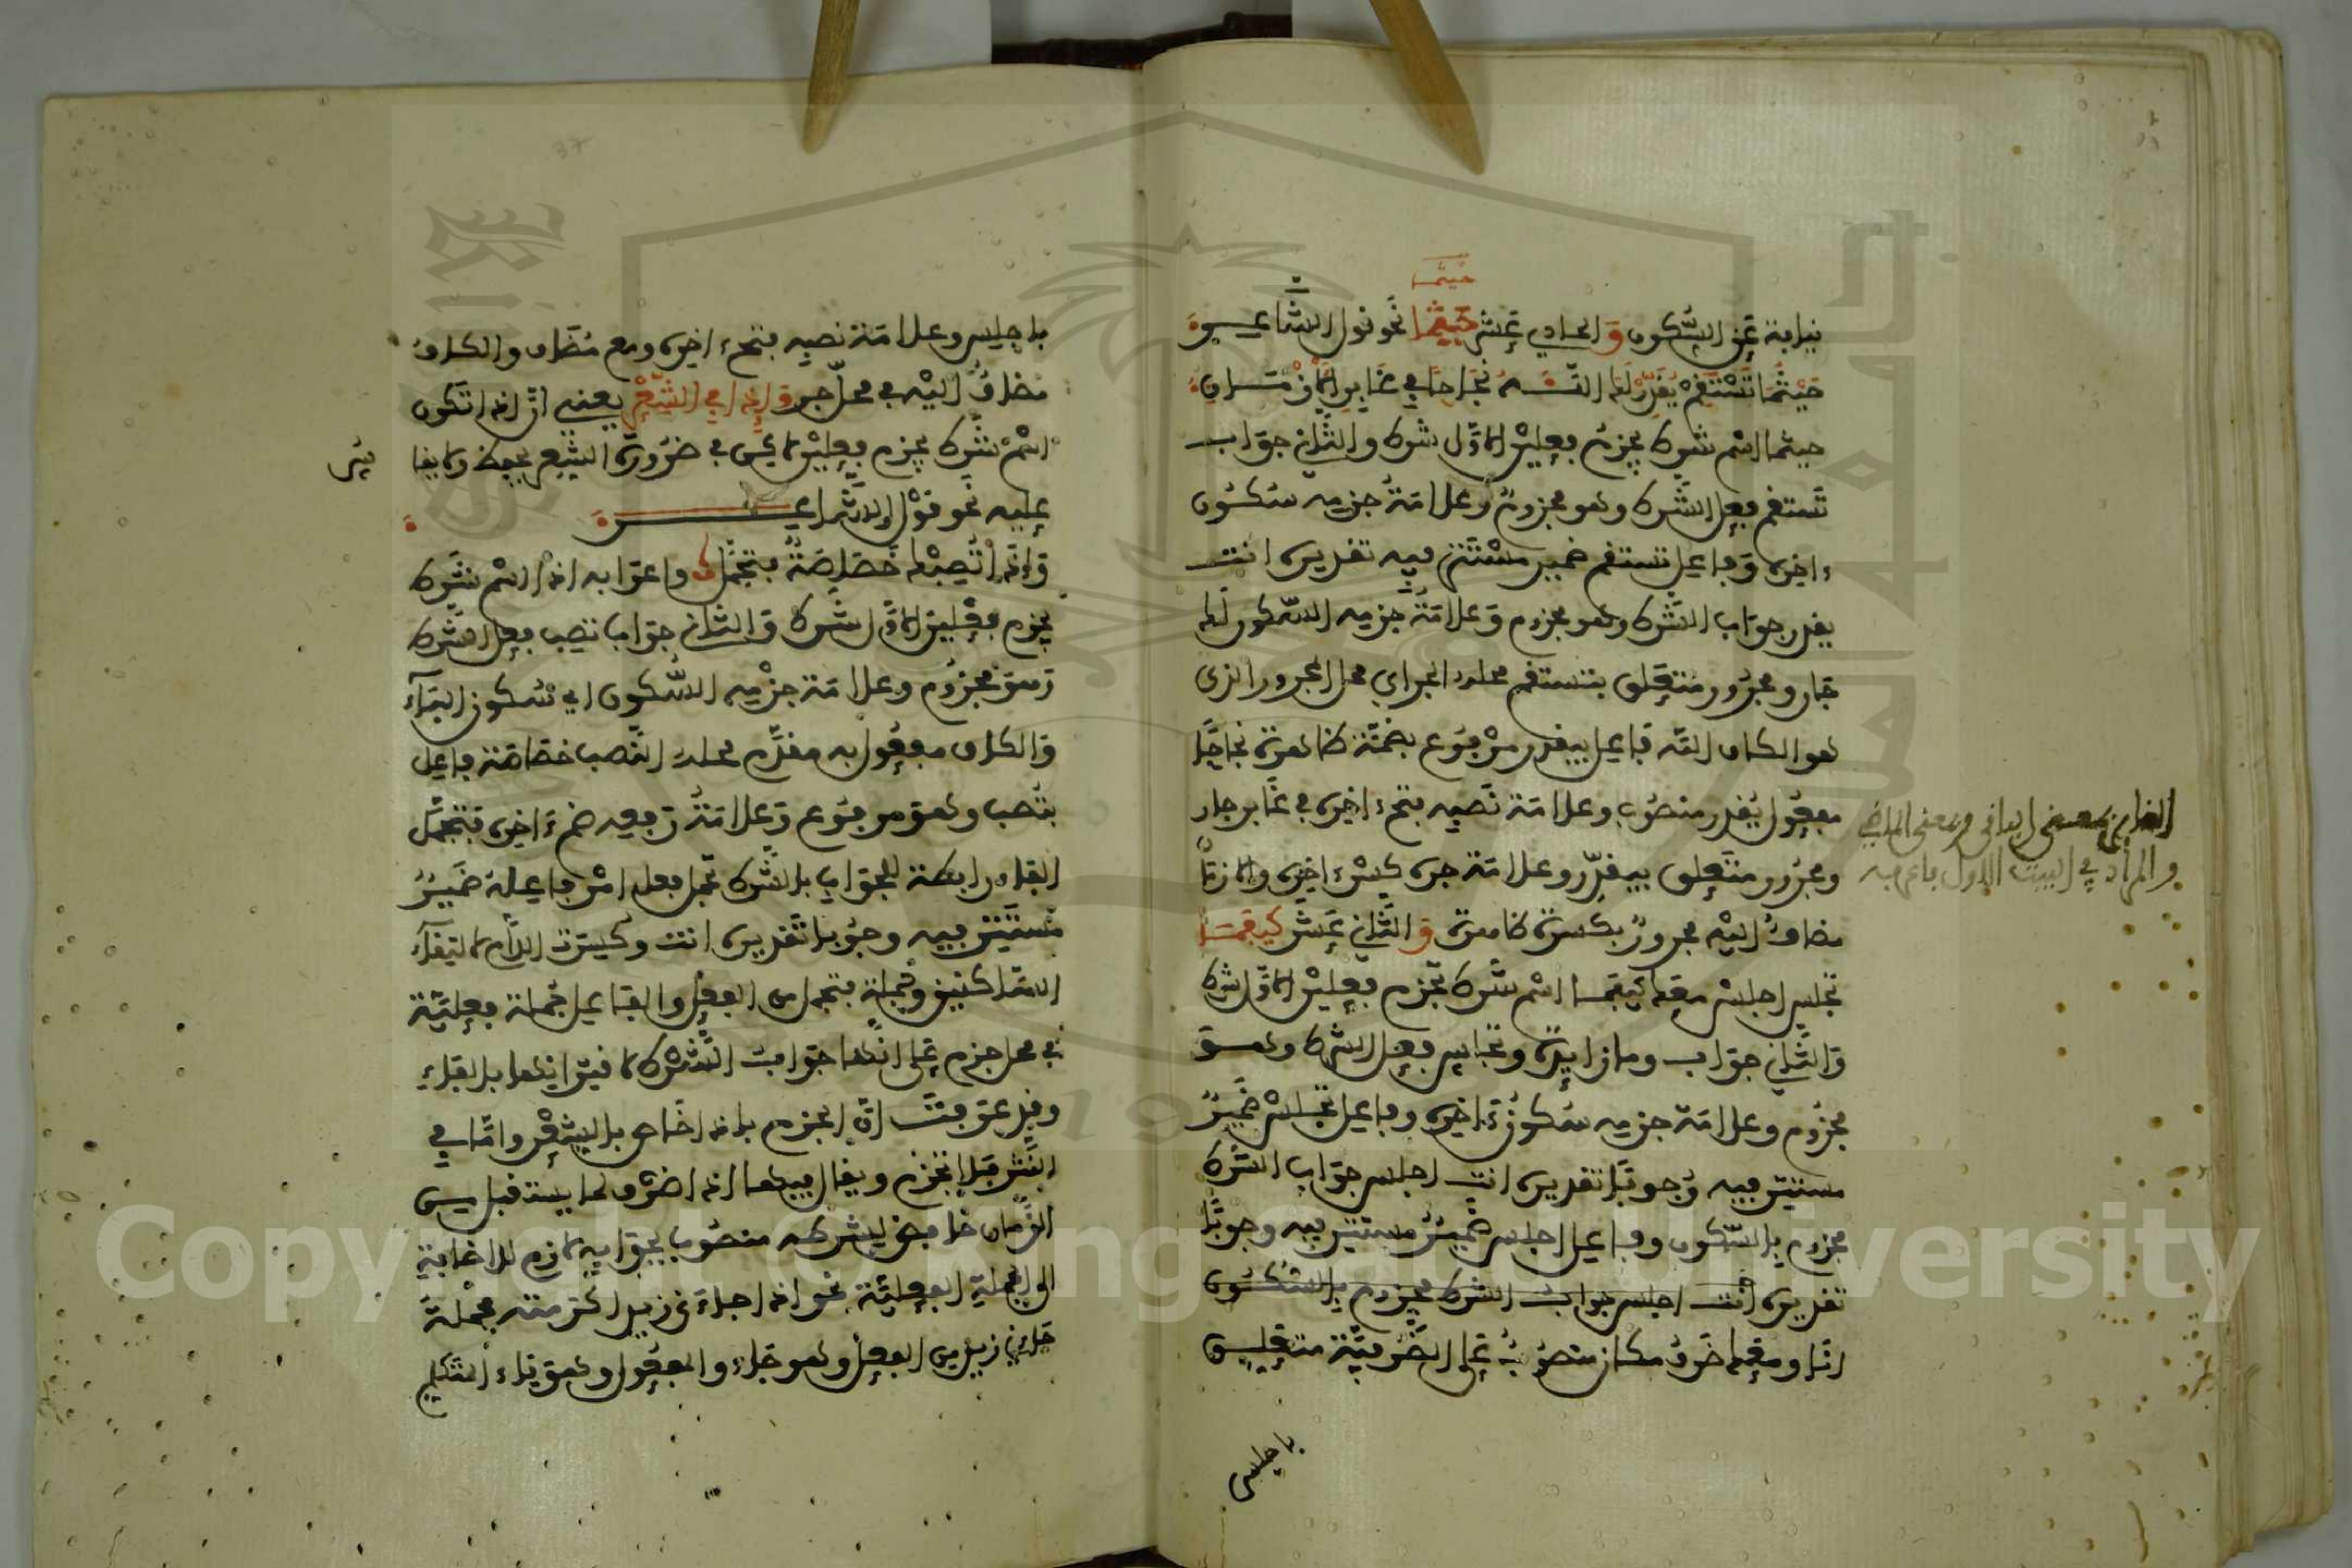 حيثما
نيابة عن السكون والحادي عشر حيثما نحو قول الشاعر
حَيْثُمَا تَسْتَقِمْ يُقَدِّرْ لَكَ اللَّهُ نَجَاحًا فِي غَابِرِ الأَزْمَانِ
حيثما اسم شرط يجزم فعلين الأول شرط والثاني جواب
تستقم فعل الشرط وهو مجزوم وعلامة جزمه سكون
ءاخره وفاعل تستقم ضمير مستتر فيه تقديره انت
يقدر جواب الشرط وهو مجزوم وعلامة جزمه السكون لك
جار ومجرور متعلق بتستقم محله الجر اي محل المجرور الذي
هو الكاف الله فاعل بيقدر مرفوع بضمة ظاهرة نجاحا
مفعول يقدر منصوب وعلامة نصبه فتح ءاخره في غابر جار
ومجرور متعلق بيقدر وعلامة جره كسر ءاخره والازمان
مضاف اليه مجرور بكسرة ظاهرة والثاني عشر كيفما
تجلس اجلس معك كيفما اسم شرط تجزم فعلين الأول شرط
والثاني جواب وما زايدة وتجلس فعل الشرط وهو
مجزوم وعلامة جزمه سكون ءاخره وفاعل تجلس ضمير
مستتر فيه وجوبا تقديره انت اجلس جواب الشرط
مجزوم بالسكون وفاعل اجلس ضمير مستتر فيه وجوبا
تقديره انت اجلس جواب الشرط مجزوم بالسكون
انا ومعك ظرف مكان منصوب على الظرفية متعلق
باجلس
الغابر بمعنى الباقي وبمعنى الماضي
والمراد في البيت الاول باعرابه
باجلس وعلامة نصبه فتح ءاخره ومع مضاف والكاف
مضاف اليه في محل جر وإذا في الشعر يعني أن إذا تكون
اسم شرط يجزم فعلين في ضرورة الشعر يحفظ ولا يقا
عليه نحو قول الشاعر
وَإِذَا تُصِبْكَ خَصَاصَةٌ فتجمل واعرابه إذا اسم شرط
يجزم فعلين الأول شرط والثاني جواب تصب فعل الشرط
وهو مجزوم وعلامة جزمه السكون اي سكون الباء
والكاف مفعول به مقدم محله النصب خصاصة فاعل
بتصب وهو مرفوع وعلامة رفعه ضم ءاخره فتجمل
الفاء رابطة للجواب بالشرط تجمل فعل امر فاعله ضمير
مستتر فيه وجوبا تقديره انت وكسرت اللام لالتقاء
الساكنين وجملة فتجمل من الفعل والفاعل جملة فعلية
في محل جزم على انها جواب الشرط لاقترانها بالفاء
وقد عرفت ان الجزم باذا خاص بالشعر واما في
النثر فلا تجزم ويقال فيها إذا ظرف لما يستقبل من
الزمان خافض لشرطه منصوب بجوابه لازم للاضافة
الى الجملة الفعلية نحو إذا جاءني زيد اكرمته فجملة
جاءني زيد من الفعل وهو جاء والمفعول وهو ياء المتكلم